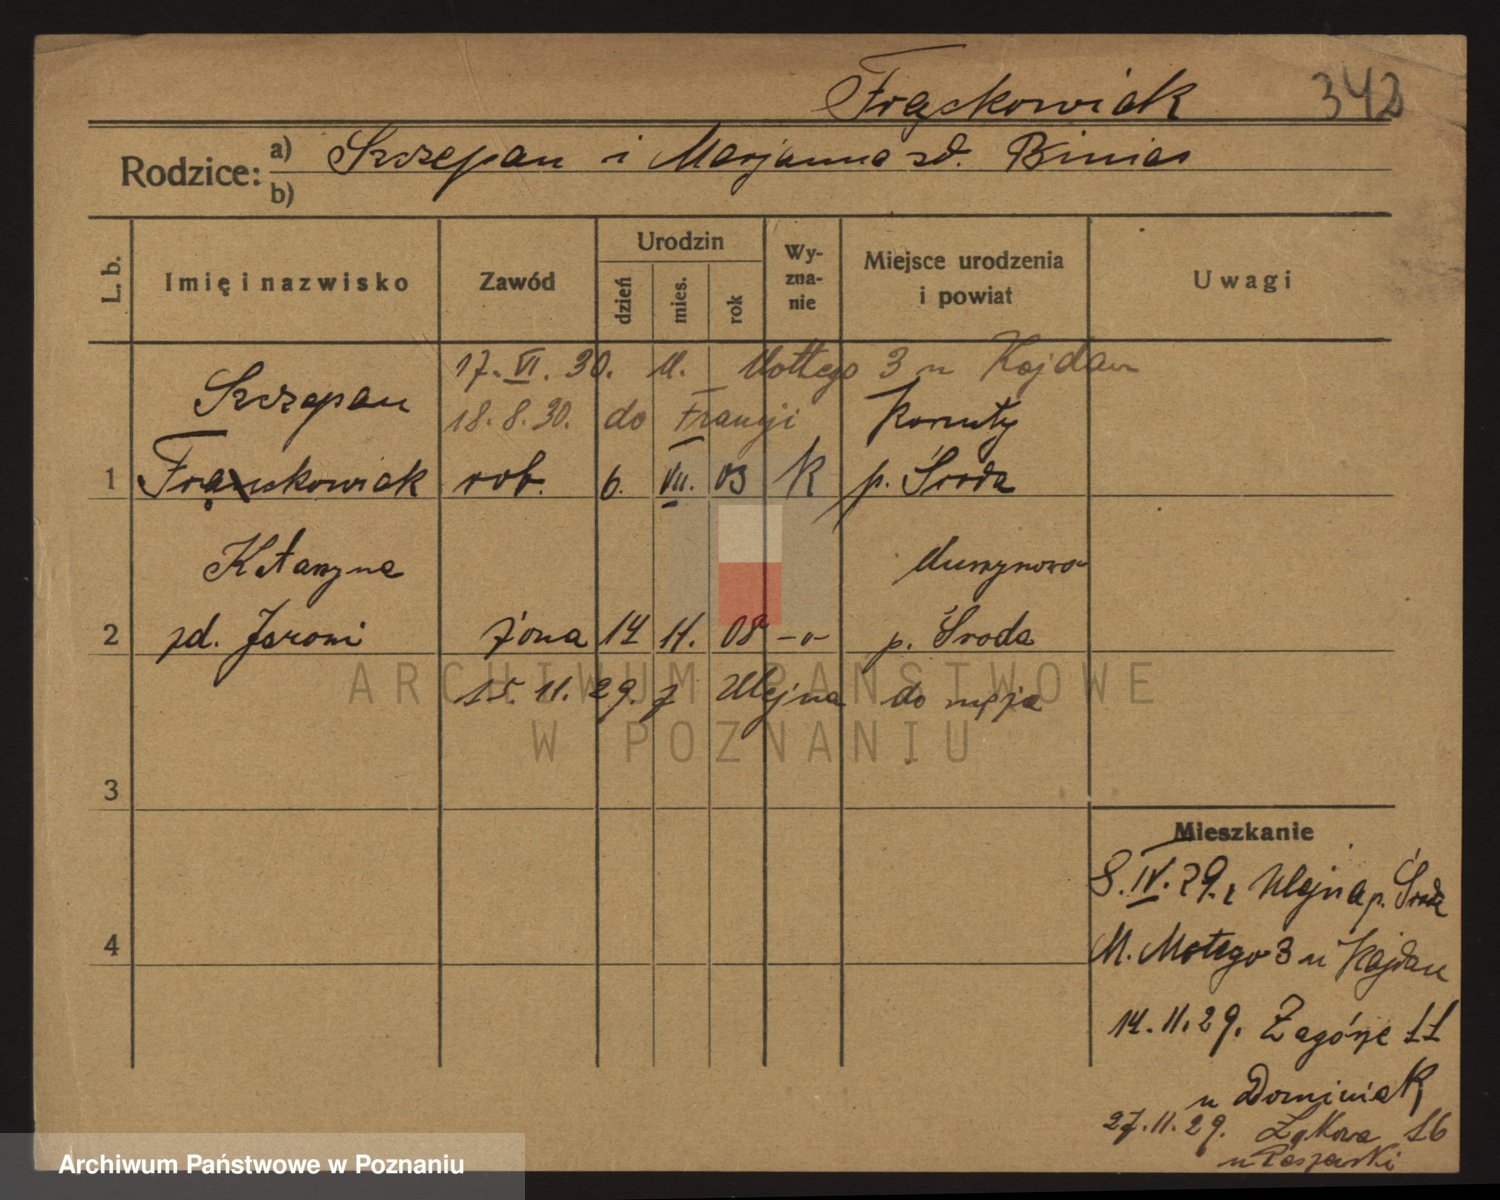 Frąckowiak 342
Rodzice: a) Szczepan i Marjanna zd. Binias
b)
L. b. Imię i nazwisko Zawód Urodzin Wy-zna-nie Miejsce urodzenia i powiat Uwagi
dzień mies. rok
17. VI. 30. M. Mottego 3 u Kajdan
Szczepan 18. 8. 30. do Francji Kornaty
1 Frąckowiak rob. 6. VII. 03 K p. Środa
Katarzyna Murzynowo
2 zd. Jaroni żona 14 11. 08 -"- p. Środa
15. 11. 29. z Ulejna do męża
3
Mieszkanie
8. IV. 29. z Ulejna p. Środa
4 M. Motego 3 u Kajdan
14. 11. 29. Zagórze 11
u Dominiak
27. 11. 29. Łąkowa 16
u
ARCHIWUM PAŃSTWOWE
W POZNANIU
Archiwum Państwowe w Poznaniu